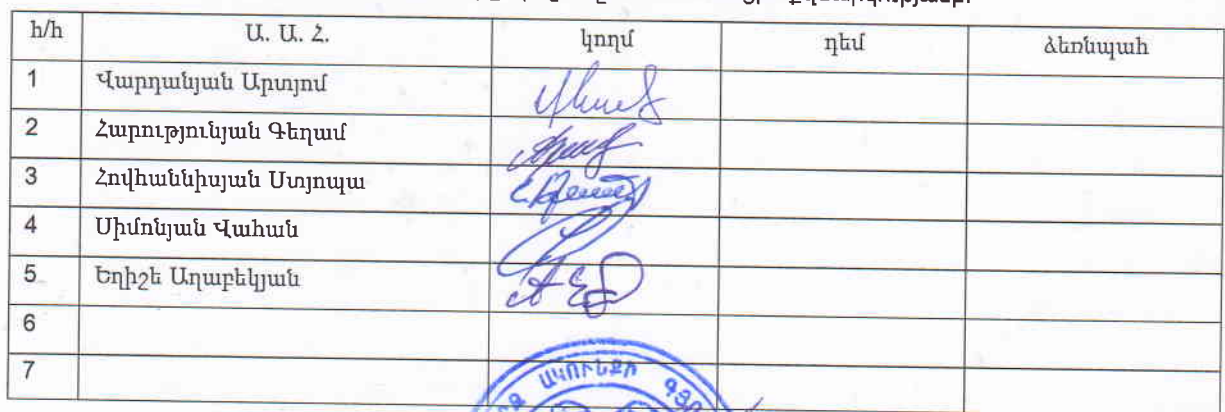 հ/հ Ա. Ա. Հ. կողմ դեմ ձեռնպահ
1 Վարդանյան Արտյոմ
2 Հարությունյան Գեղամ
3 Հովհաննիսյան Ստյոպա
4 Սիմոնյան Վահան
5 Եղիշե Աղաբեկյան
6
7
ԱԿՈՒՆՔԻ